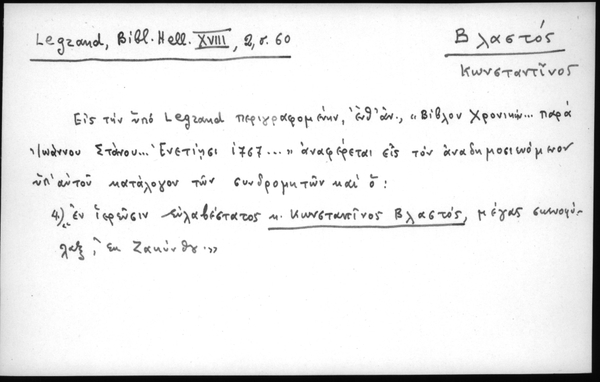 Legrand, Bibl. Hell. XVIII, 2, σ. 60
Βλαστός
Κωνσταντῖνος
Εἰς τὴν ὑπὸ Legrand περιγραφομένην, ἐνθ' ἀν., "Βίβλον Χρονικὴν... παρὰ
Ἰωάννου Στάνου... Ἐνετίῃσι 1767..." ἀναφέρεται εἰς τὸν ἀναδημοσιευόμενον
ὑπ' αὐτοῦ κατάλογον τῶν συνδρομητῶν καὶ ὁ:
4) "ἐν ἱερεῦσιν εὐλαβέστατος κ. Κωνσταντῖνος Βλαστός, μέγας σκευοφύ-
λαξ, ἐκ Ζακύνθου."